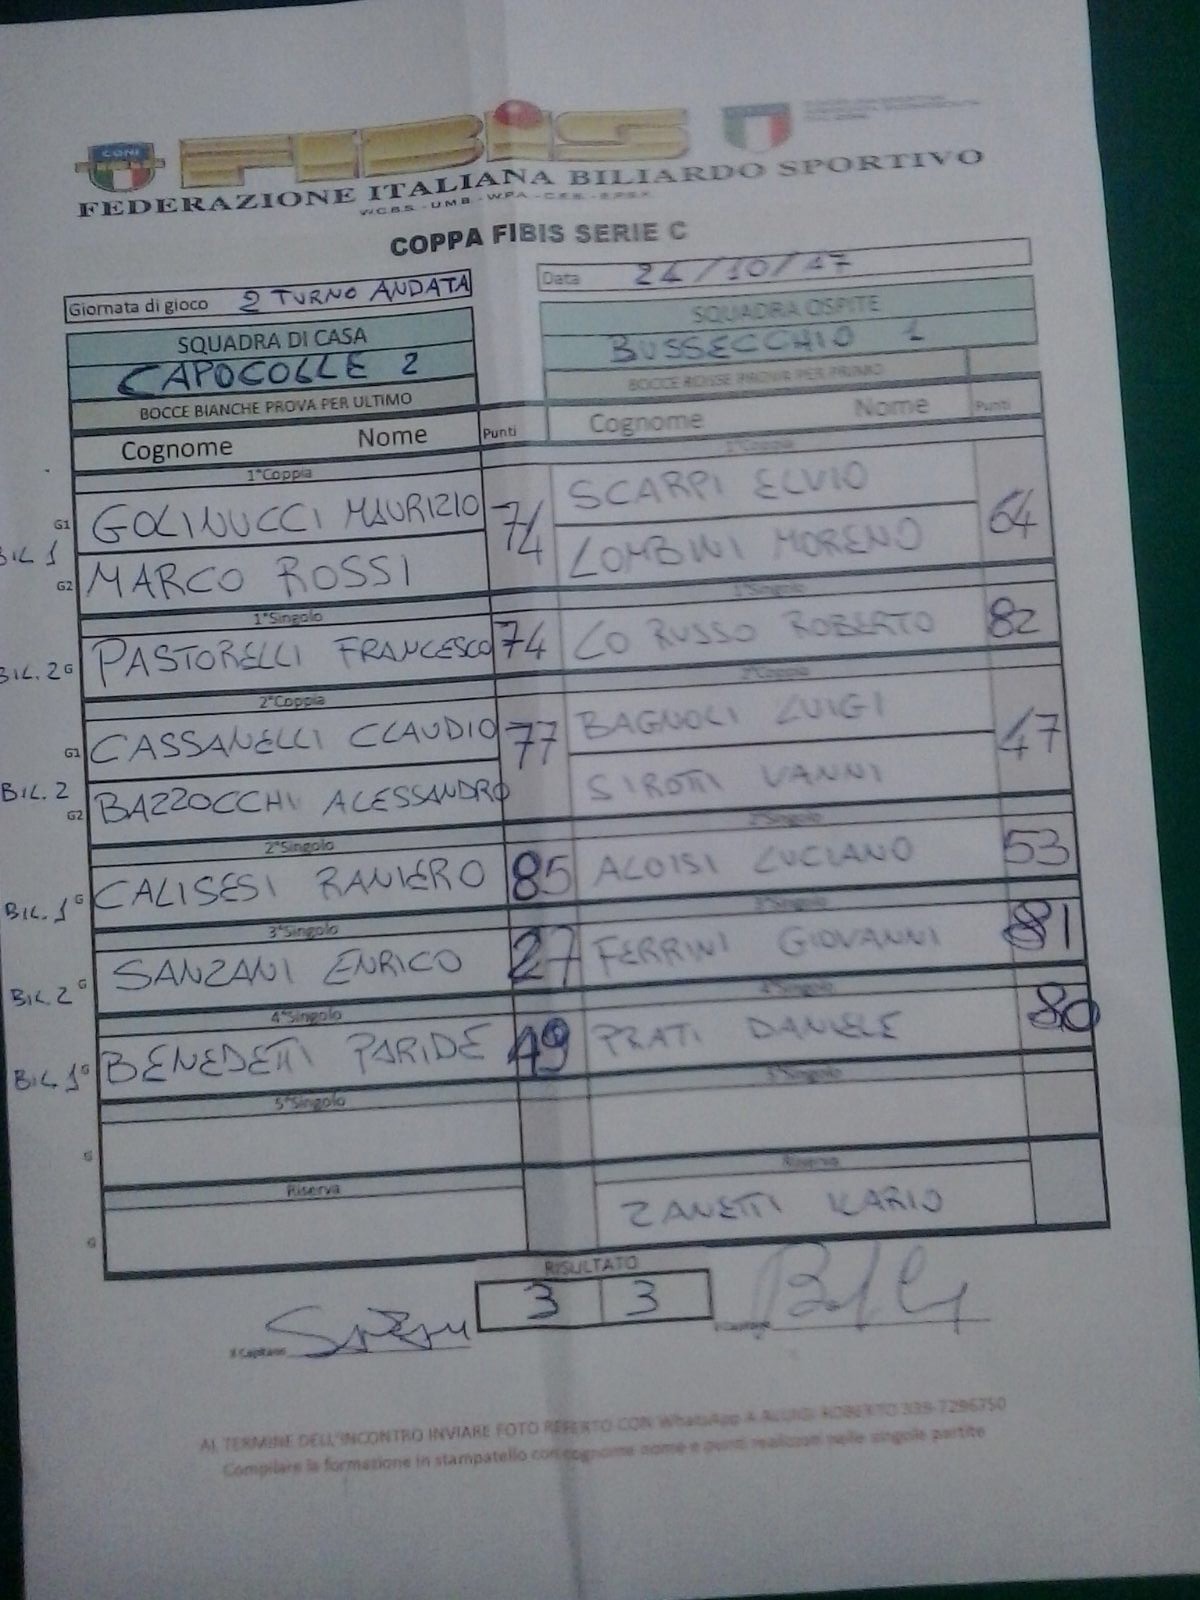 CONI
FIBIS
FEDERAZIONE ITALIANA BILIARDO SPORTIVO
W.C.B.S. - U.M.B. - W.P.A. - C.E.B. - E.P.B.F.
COPPA FIBIS SERIE C
Giornata di gioco 2 TURNO ANDATA
Data 24/10/17
SQUADRA DI CASA
SQUADRA OSPITE
CAPOCOLLE 2
BUSSECCHIO 1
BOCCE BIANCHE PROVA PER ULTIMO
BOCCE ROSSE PROVA PER PRIMO
Cognome Nome Punti
Cognome Nome Punti
1°Coppia
1°Coppia
BIL 1
G1 GOLINUCCI MAURIZIO 74
SCARPI ELVIO 64
G2 MARCO ROSSI
LOMBINI MORENO
1°Singolo
1°Singolo
BIL. 2 G PASTORELLI FRANCESCO 74
LO RUSSO ROBERTO 82
2°Coppia
2°Coppia
G1 CASSANELLI CLAUDIO 77
BAGNOLI LUIGI 47
BIL. 2 G2 BAZZOCCHI ALESSANDRO
SIROTTI VANNI
2°Singolo
2°Singolo
BIL. 1 G CALISESI RANIERO 85
ALOISI LUCIANO 53
3°Singolo
3°Singolo
BIL. 2 G SANZANI ENRICO 27
FERRINI GIOVANNI 81
4°Singolo
4°Singolo
BIL. 1 G BENEDETTI PARIDE 49
PRATI DANIELE 80
5°Singolo
5°Singolo
G
Riserva
Riserva
G
ZANETTI ILARIO
RISULTATO
3 3
Il Capitano
Il Capitano
AL TERMINE DELL'INCONTRO INVIARE FOTO REFERTO CON WhatsApp A ALUIGI ROBERTO 339-7296750
Compilare la formazione in stampatello con cognome nome e punti realizzati nelle singole partite